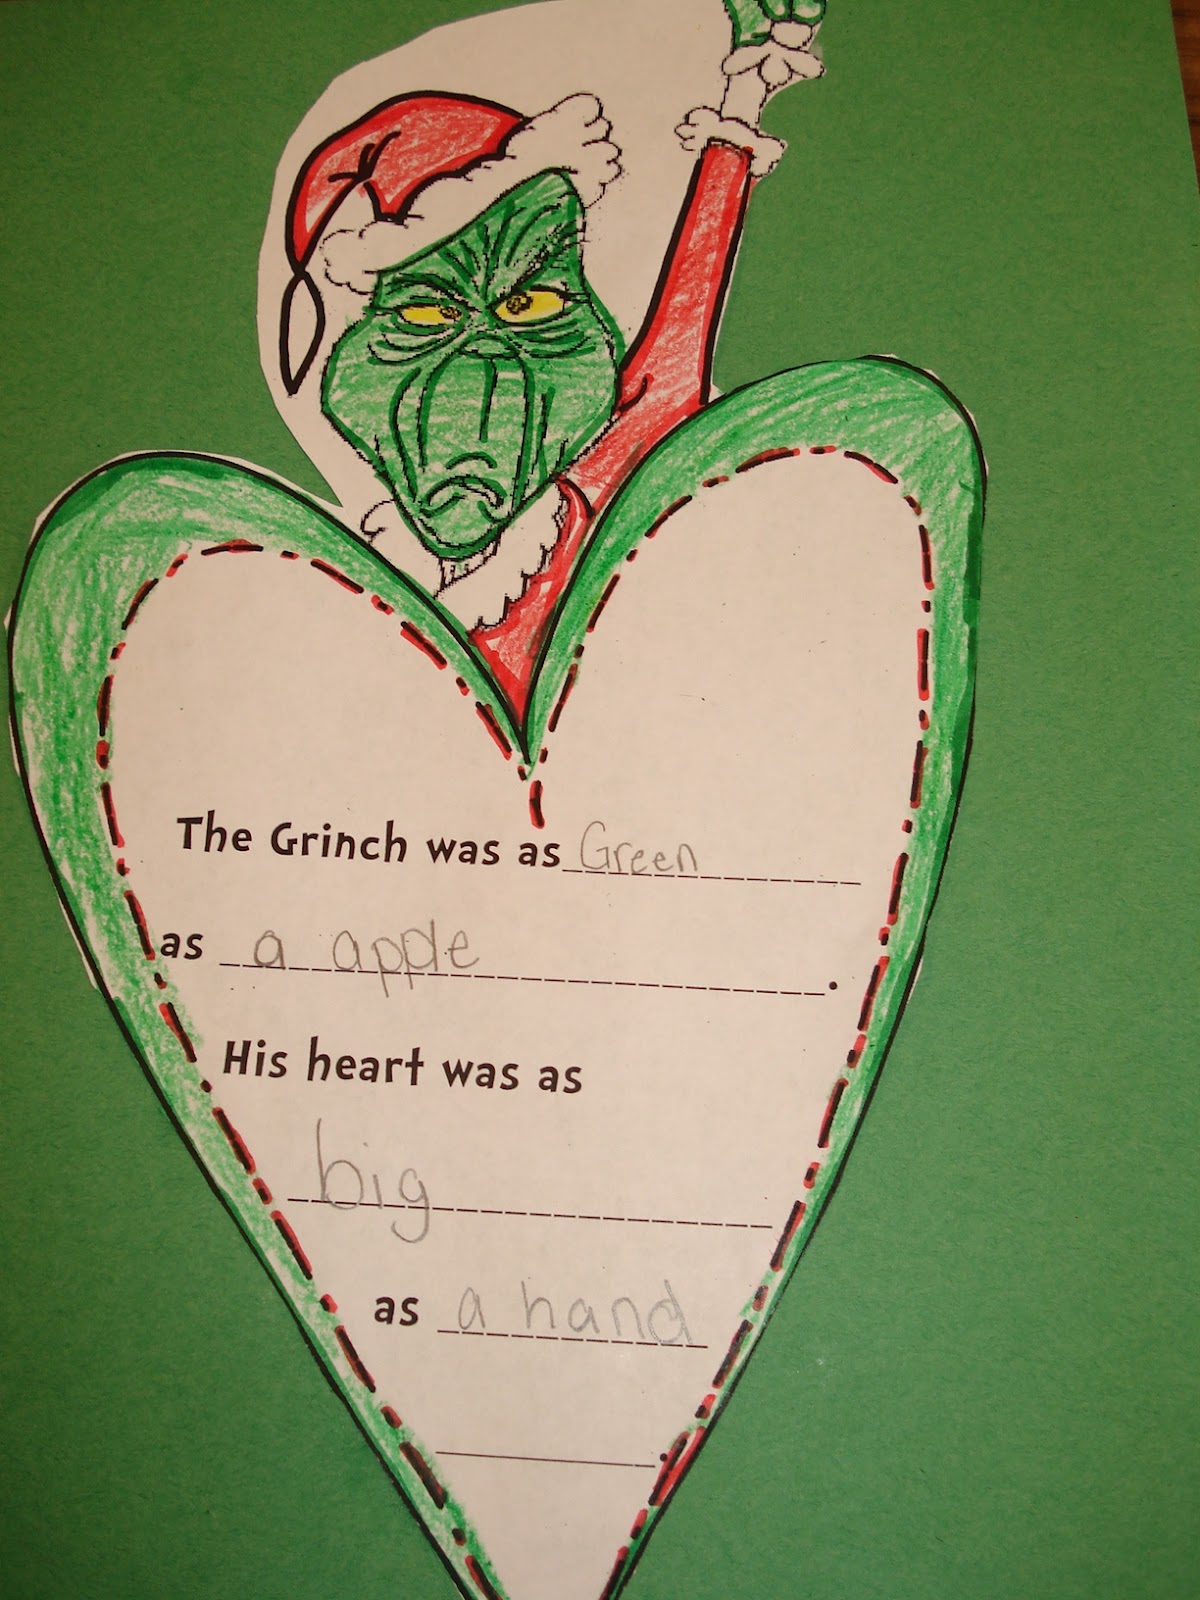 The Grinch was as Green
as a apple.
His heart was as
big
as a hand
.